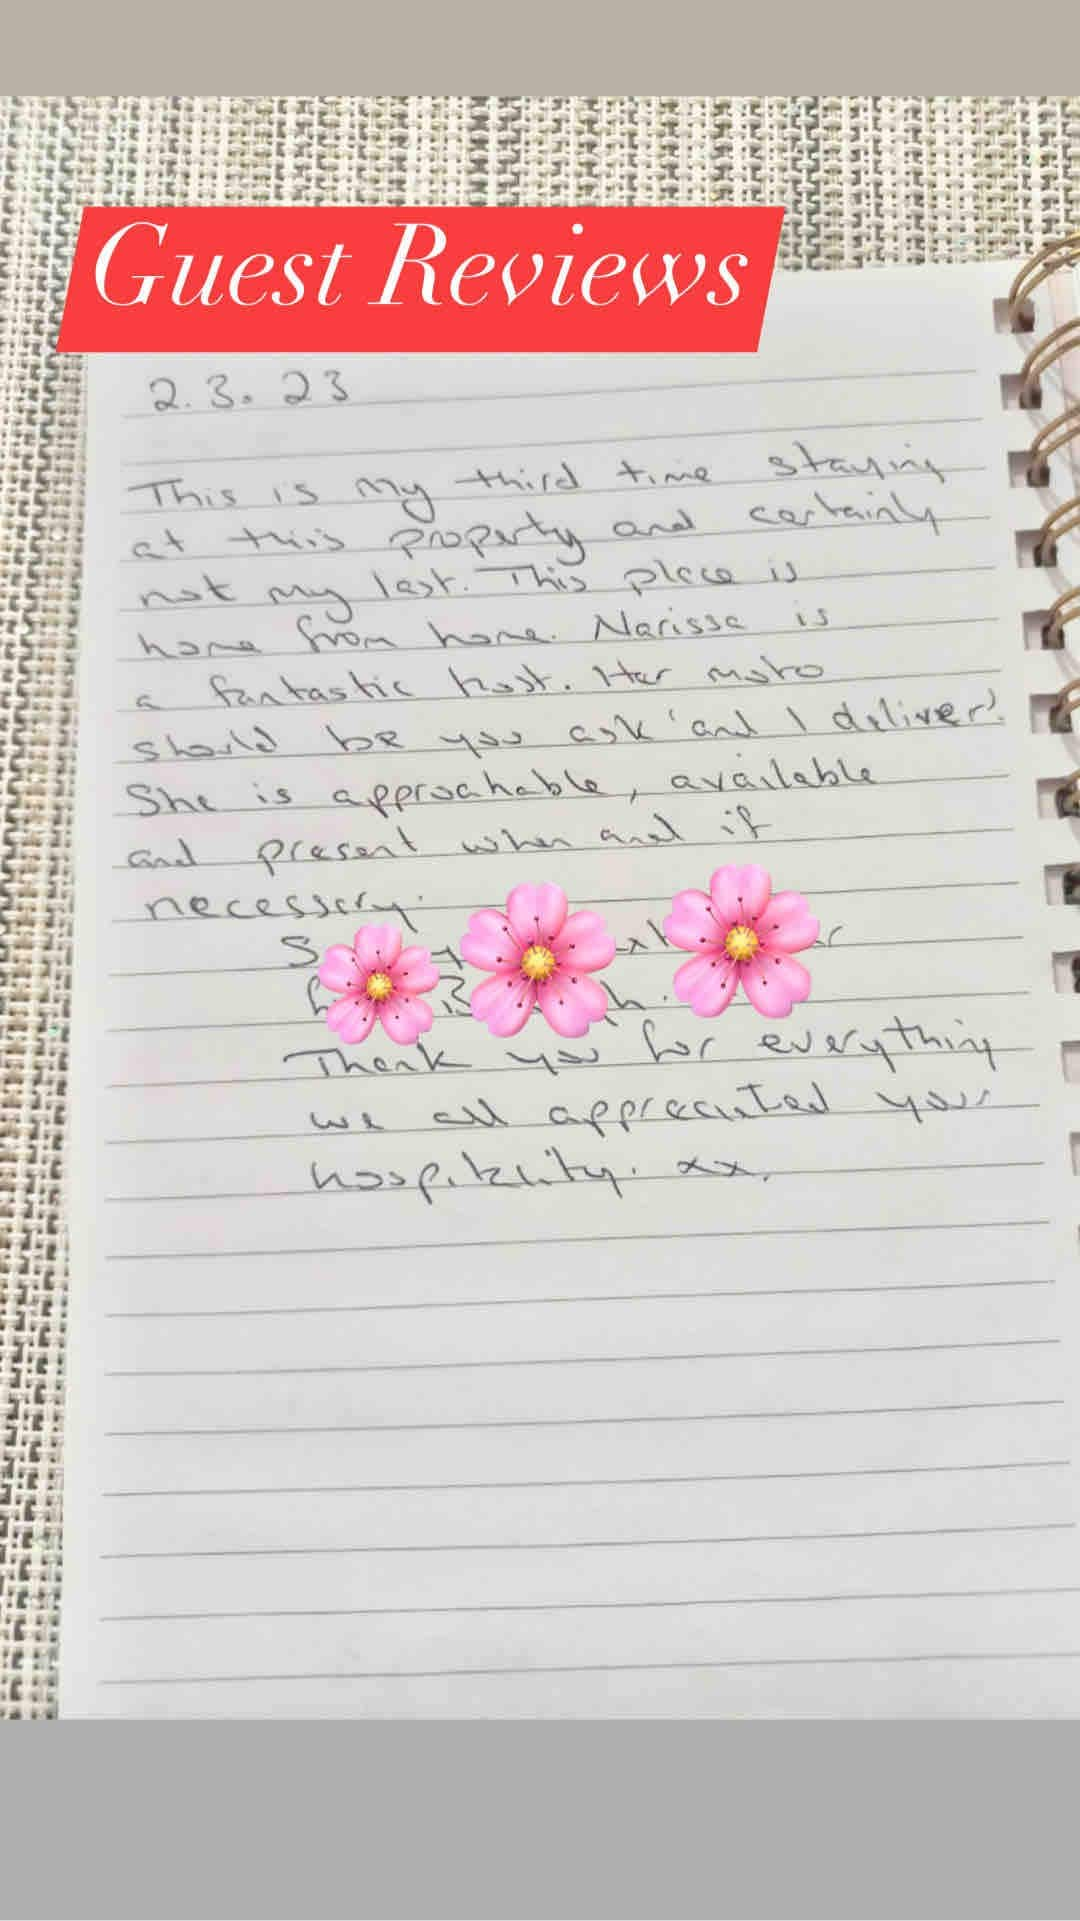 Guest Reviews
2.3.23
This is my third time staying
at this property and certainly
not my last. This place is
home from home. Narissa is
a fantastic host. Her moto
should be you ask 'and I deliver'.
She is approahable, available
and present when and if
necessery.
Thank you for everything
we all appreciated your
hospitality. xx.